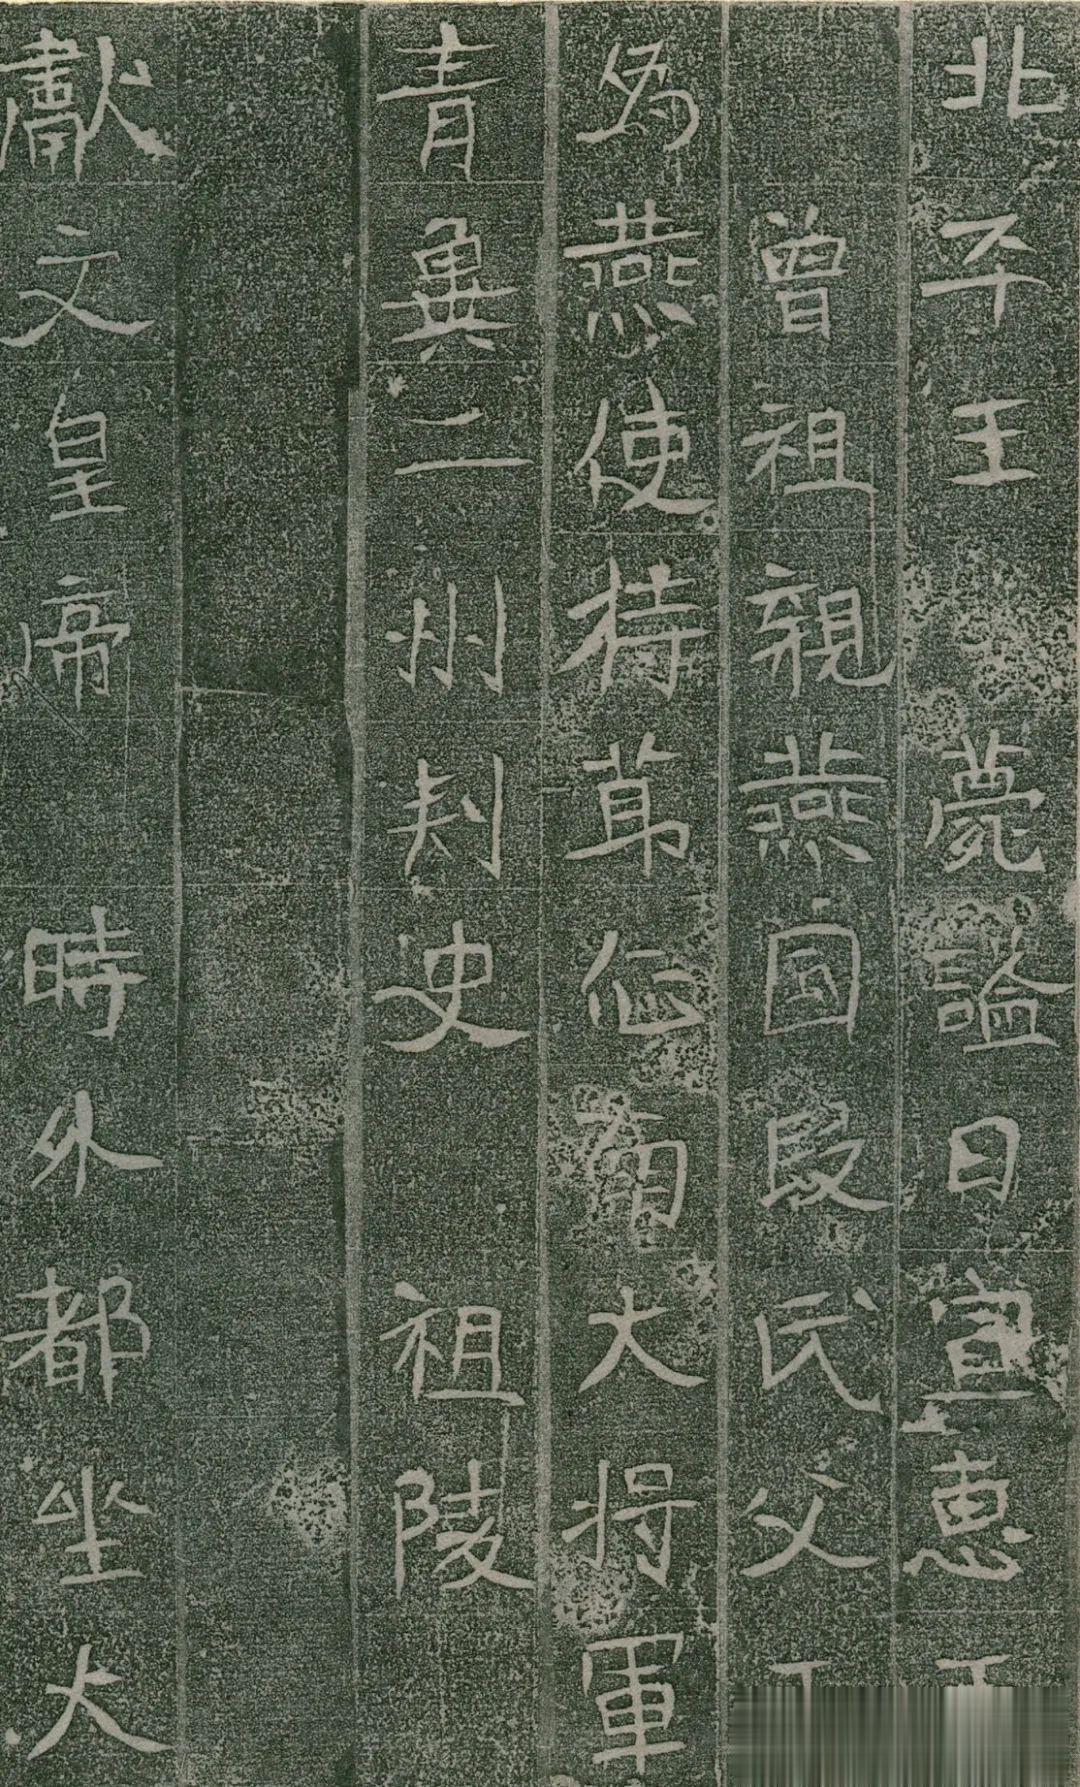 北平王薨謚曰宣恵
曽祖親燕國段氏父
為燕使持節征南大將軍
青冀二州刾史祖陵
獻文皇帝時外都坐大